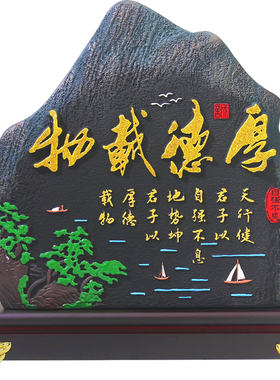 厚德載物
天行健
君子以
自强不息
地势坤
君子以
厚德
载物